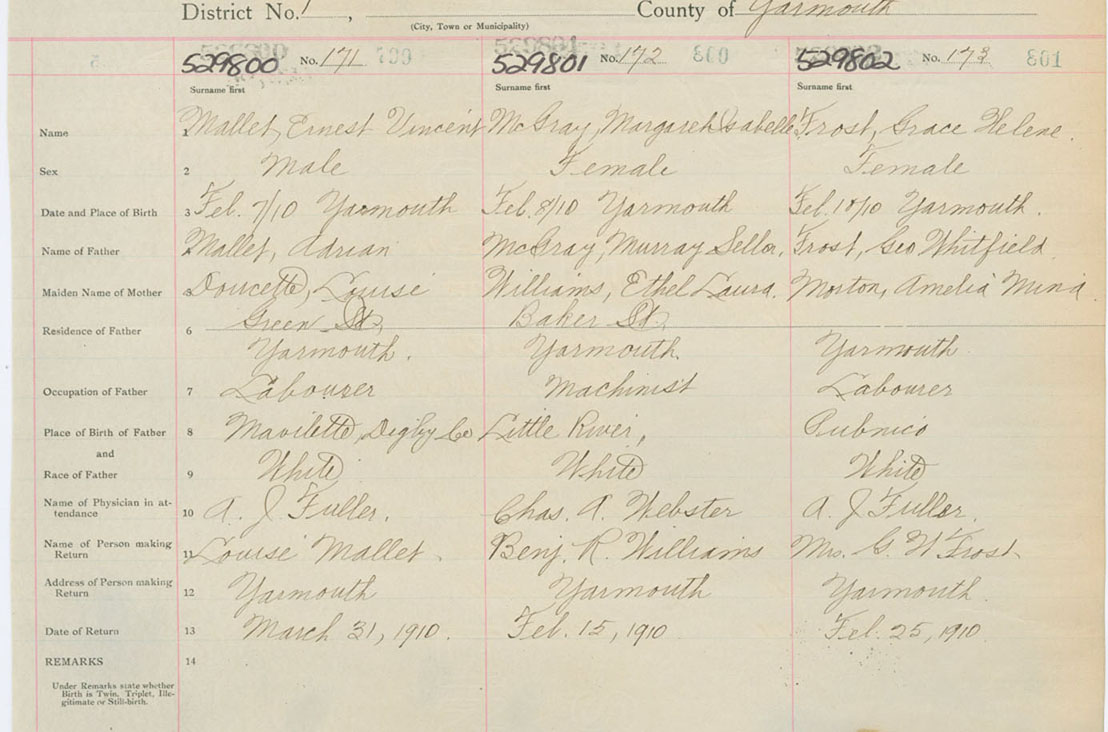 District No. 1 , County of Yarmouth
(City, Town or Municipality)
529800 No. 171 529801 No. 172 300 529802 No. 173 301
Surname first Surname first Surname first
Name 1 Mallet, Ernest Vincent McGray, Margareth Isabelle Frost, Grace Helene.
Sex 2 Male Female Female
Date and Place of Birth 3 Feb. 7/10 Yarmouth Feb. 8/10 Yarmouth Feb. 10/10 Yarmouth.
Name of Father 4 Mallet, Adrian McGray, Murray Frost, Geo Whitfield.
Maiden Name of Mother 5 Doucette, Louise Williams, Ethel Laura. Morton, Amelia Mina
Green St, Baker St,
Residence of Father 6
Yarmouth. Yarmouth. Yarmouth
Occupation of Father 7 Labourer Machinist Labourer
Place of Birth of Father 8 Mavilette, Digby Co Little River, Pubnico
and
Race of Father 9 White White White
Name of Physician in at-
tendance 10 A. J. Fuller. Chas. A. Webster A. J. Fuller.
Name of Person making
Return 11 Louise Mallet. Benj. R. Williams Mrs. G. W. Frost
Address of Person making
Return 12 Yarmouth Yarmouth Yarmouth.
Date of Return 13 March 31, 1910. Feb. 15, 1910 Feb. 25, 1910.
REMARKS 14
Under Remarks state whether
Birth is Twin, Triplet, Ille-
gitimate or Still-birth.